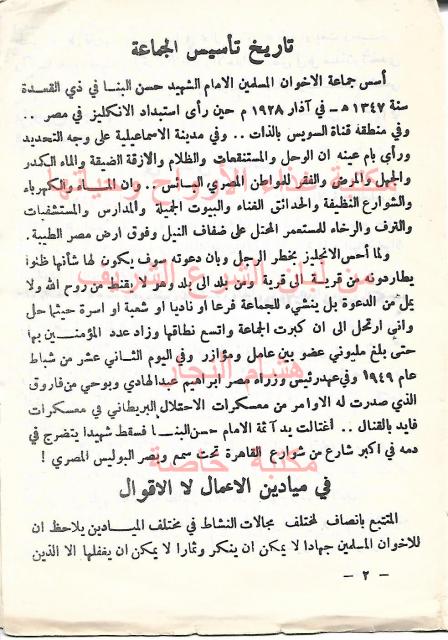 تاريخ تأسيس الجماعة
أسس جماعة الاخوان المسلمين الامام الشهيد حسن البنا في ذي القعدة
سنة ١٣٤٧ هـ - في آذار ١٩٢٨ م حين رأى استبداد الانكليز في مصر ..
وفي منطقة قناة السويس بالذات .. وفي مدينة الاسماعيلية على وجه التحديد
ورأى بام عينه ان الوحل والمستنقعات والظلام والازقة الضيقة والماء الكدر
والجهل والمرض والفقر للمواطن المصري البائس .. وان الماء والكهرباء
والشوارع النظيفة والحدائق الغناء والبيوت الجميلة والمدارس والمستشفيات
والترف والرخاء للمستعمر المحتل على ضفاف النيل وفوق ارض مصر الطيبة.
ولما أحس الانجليز بخطر الرجل وبان دعوته سوف يكون لها شأنها ظنوا
يطاردونه من قرية الى قرية ومن بلد الى بلد وهو لا يقنط من روح الله ولا
يمل من الدعوة بل ينشيء للجماعة فرعا او ناديا او شعبة او اسرة حيثما حل
وانى ارتحل الى ان كبرت الجماعة واتسع نطاقها وزاد عدد المؤمنين بها
حتى بلغ مليوني عضو بين عامل ومؤازر وفي اليوم الثاني عشر من شباط
عام ١٩٤٩ وفي عهد رئيس وزراء مصر ابراهيم عبدالهادي وبوحي من فاروق
الذي صدرت له الاوامر من معسكرات الاحتلال البريطاني في معسكرات
فايد بالقنال .. اغتالت يد آثمة الامام حسن البنا فسقط شهيدا يتضرج في
دمه في اكبر شارع من شوارع القاهرة تحت سمع وبصر البوليس المصري !
في ميادين الاعمال لا الاقوال
المتتبع بانصاف لمختلف مجالات النشاط في مختلف الميادين يلاحظ ان
للاخوان المسلمين جهادا لا يمكن ان ينكر وثمارا لا يمكن ان يغفلها الا الذين
- ٢ -
مكتبة غذاء الارواح
من لبان الشرع الشريف
هشام النجار
مكتبة خاصة